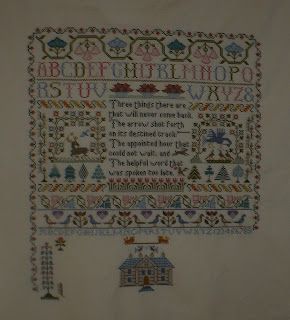 ABCDEFGHIJKLMNOPQ
RSTUV WXYZ&
Three things there are
that will never come back.
The arrow shot forth
on its destined track
The appointed hour that
could not wait, and
The helpful word that
was spoken too late.
ABCDEFGHIJKLMNOPQRSTUVWXYZ123456789